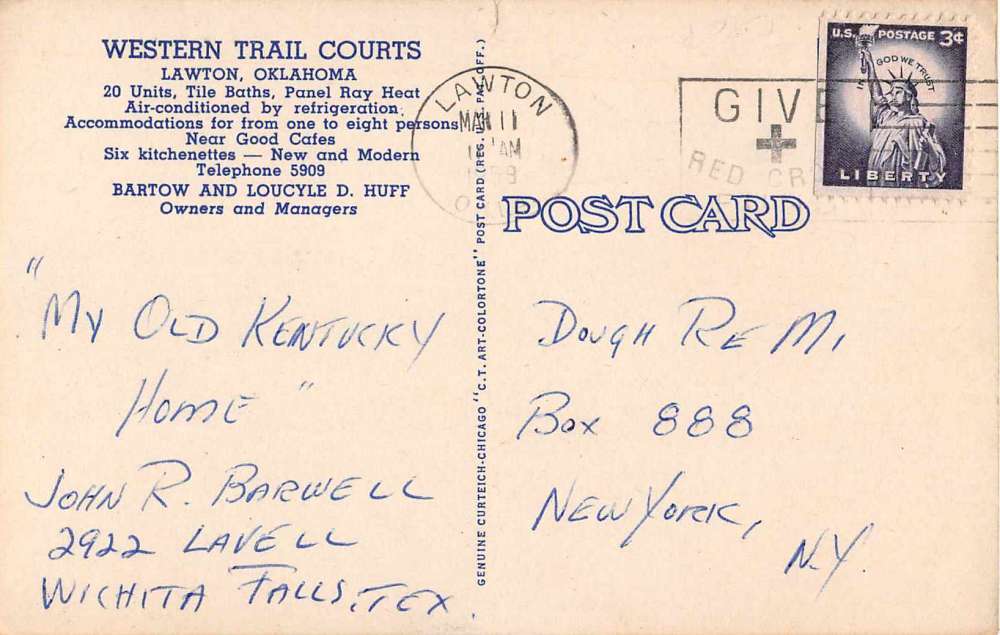 WESTERN TRAIL COURTS
LAWTON, OKLAHOMA
20 Units, Tile Baths, Panel Ray Heat
Air-conditioned by refrigeration
Accommodations for from one to eight persons
Near Good Cafes
Six kitchenettes — New and Modern
Telephone 5909
BARTOW AND LOUCYLE D. HUFF
Owners and Managers
"My Old Kentucky
Home"
John R. Barwell
2922 Lavell
Wichita Falls, Tex.
GENUINE CURTEICH-CHICAGO "C.T. ART-COLORTONE" POST CARD (REG. U.S. PAT. OFF.)
LAWTON
MAR 11
AM
GIVE
RED CR
U.S. POSTAGE 3¢
IN GOD WE TRUST
LIBERTY
POST CARD
Dough Re Mi
Box 888
New York,
N.Y.